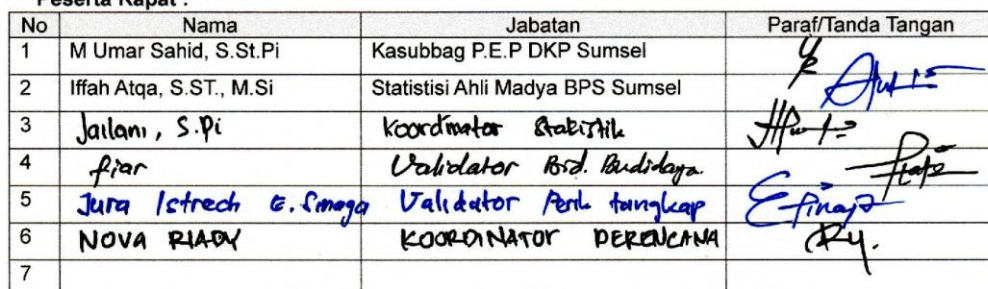 Peserta Rapat :
No Nama Jabatan Paraf/Tanda Tangan
1 M Umar Sahid, S.St.Pi Kasubbag P.E.P DKP Sumsel
2 Iffah Atqa, S.ST., M.Si Statistisi Ahli Madya BPS Sumsel
3 Jailani, S.Pi Koordinator Statistik
4 fiar Validator Bid. Budidaya
5 Jura Istrech E. Smaga Validator Perik tangkap
6 NOVA RIADY KOORDINATOR PERENCANA
7